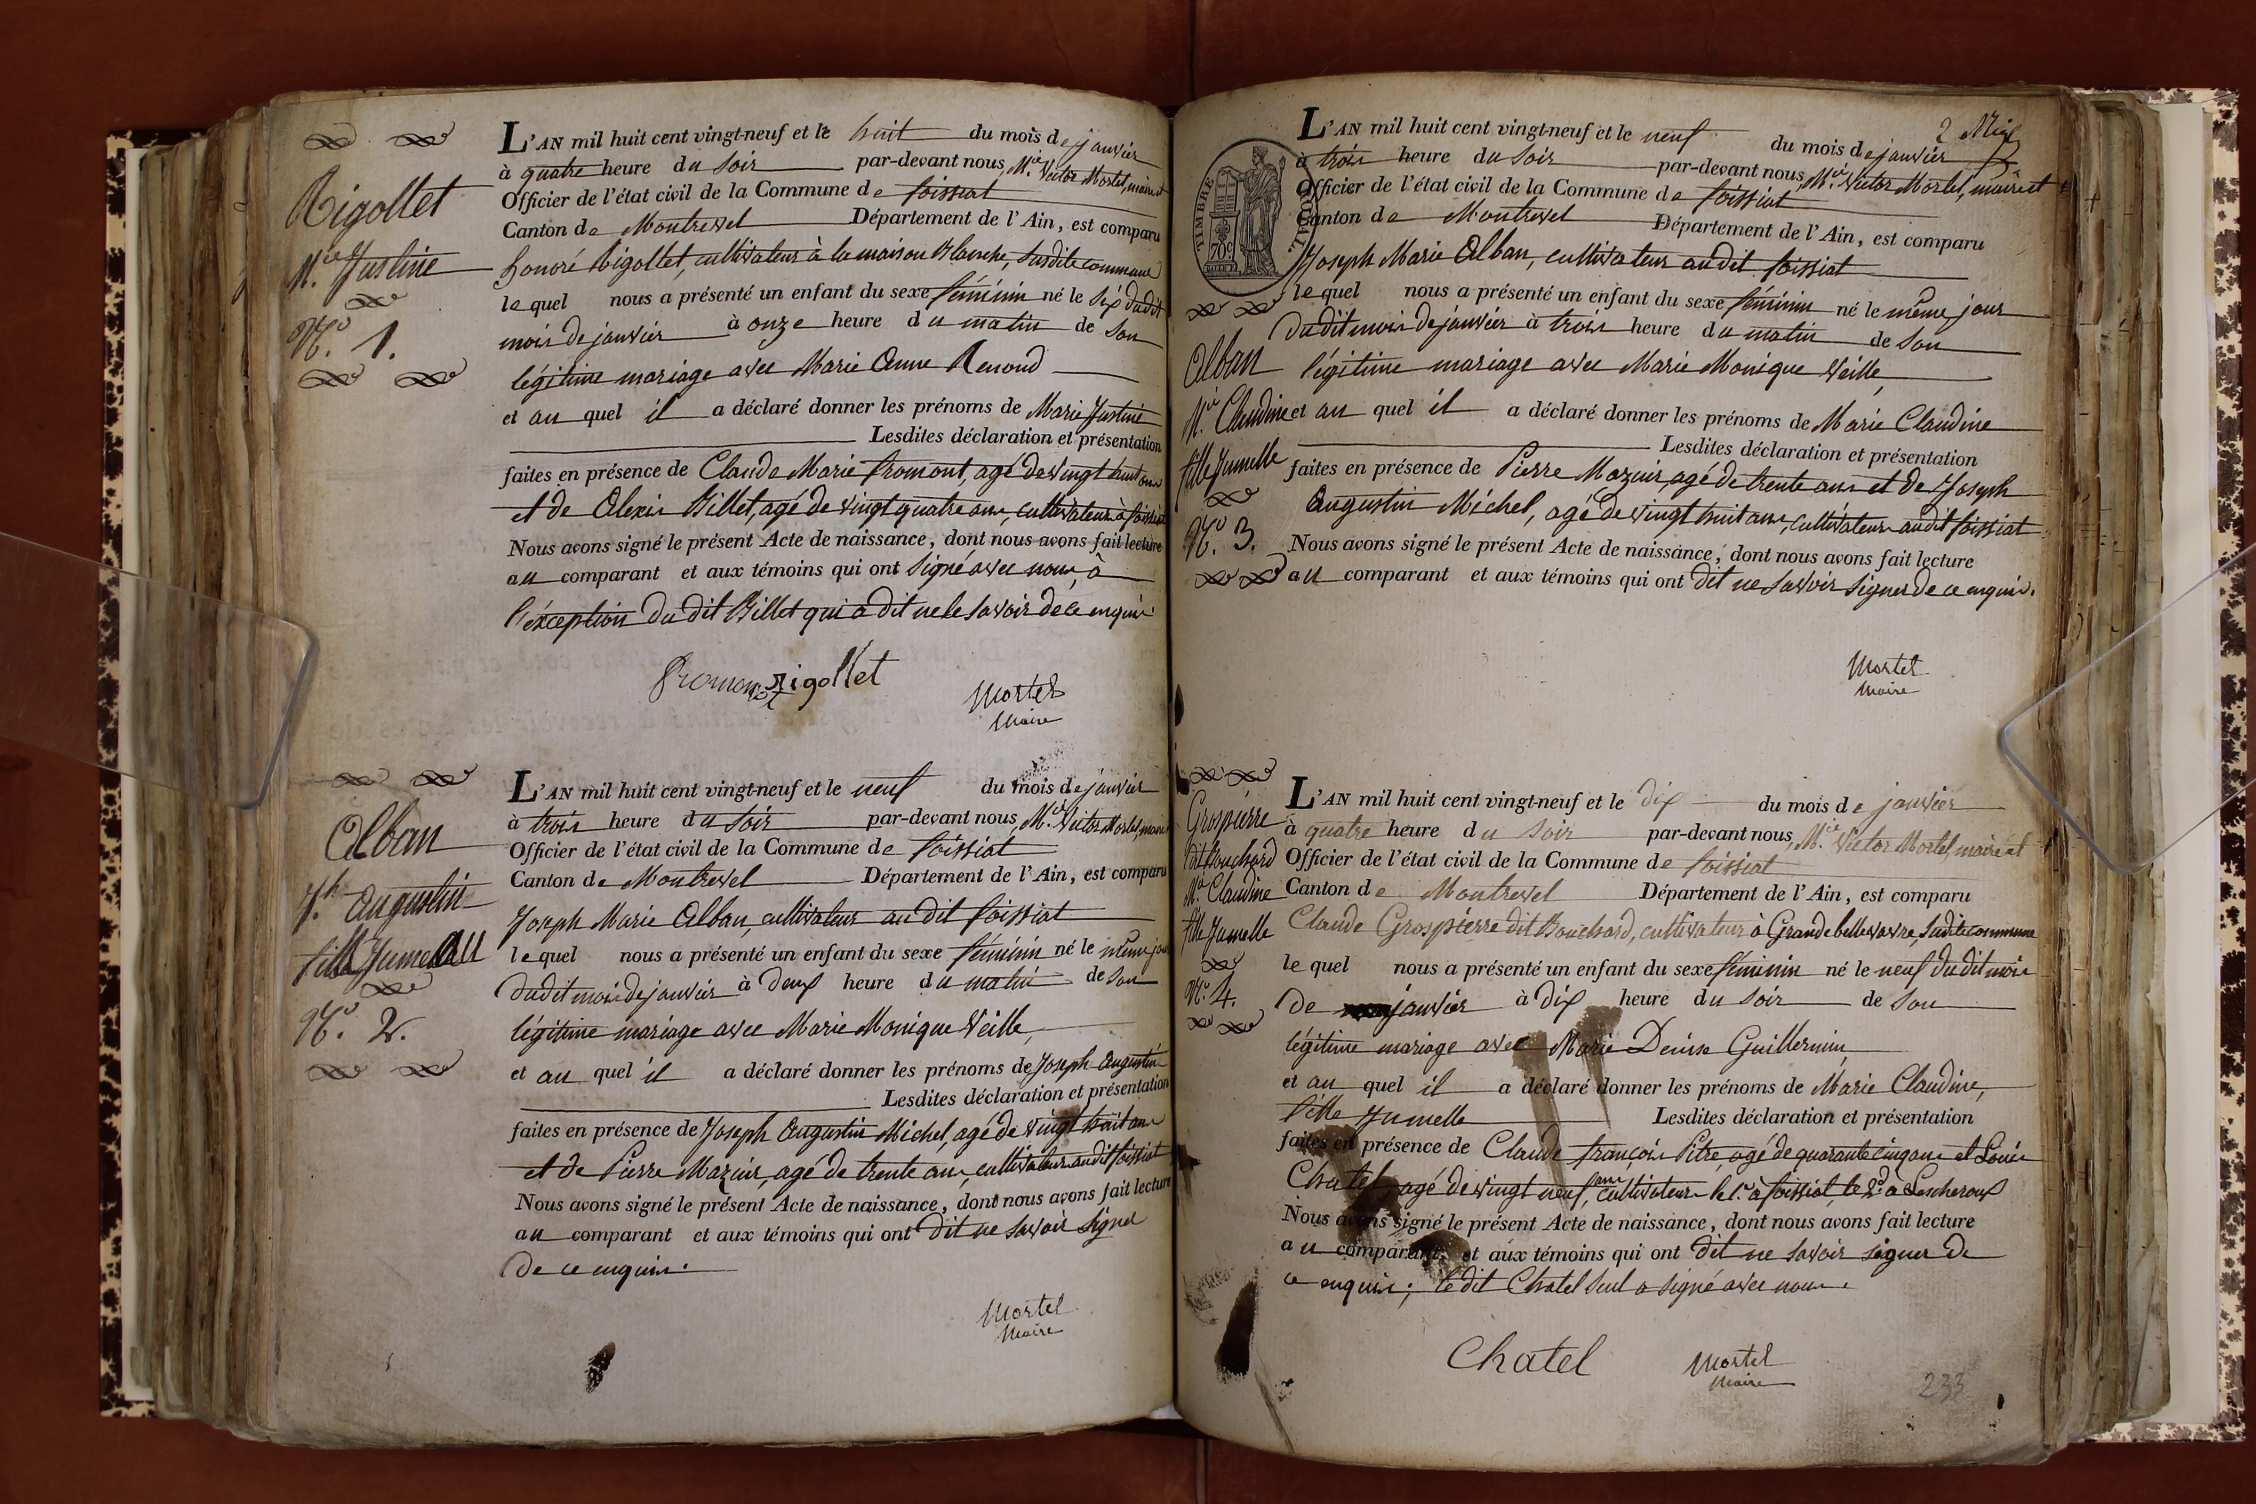 Rigollet
M.ie Justine
N.o 1.
L'AN mil huit cent vingt-neuf et le huit du mois de janvier
à quatre heure du soir par-devant nous, M.re Victor Mortel, maire et
Officier de l'état civil de la Commune de foissiat
Canton de Montrevel Département de l'Ain, est comparu
honoré Rigollet, cultivateur à la maison Blanche, susdite commune
lequel nous a présenté un enfant du sexe féminin né le six dudit
mois de janvier à onze heure du matin de son
légitime mariage avec Marie Anne Renoud
et au quel il a déclaré donner les prénoms de Marie Justine
Lesdites déclaration et présentation
faites en présence de Claude Marie fromont, agé de vingt huit ans
et de Alexis Billet, agé de vingt quatre ans, cultivateurs à foissiat
Nous avons signé le présent Acte de naissance, dont nous avons fait lecture
au comparant et aux témoins qui ont signé avec nous, à
l'éxception du dit Billet qui a dit ne le savoir de ce enquis
fromont rigollet
Mortel
Maire
Alban
J.h augustin
fille Jumeau
N.o 2.
L'AN mil huit cent vingt-neuf et le neuf du mois de janvier
à trois heure du soir par-devant nous, M.re Victor Mortel, maire
Officier de l'état civil de la Commune de foissiat
Canton de Montrevel Département de l'Ain, est comparu
Joseph Marie Alban, cultivateur au dit foissiat
lequel nous a présenté un enfant du sexe féminin né le même jour
dudit mois de janvier à deux heure du matin de son
légitime mariage avec Marie Monique Veille,
et au quel il a déclaré donner les prénoms de Joseph Augustin
Lesdites déclaration et présentation
faites en présence de Joseph Augustin Michel, agé de vingt huit ans
et de Pierre Mazuir, agé de trente ans, cultivateurs audit foissiat
Nous avons signé le présent Acte de naissance, dont nous avons fait lecture
au comparant et aux témoins qui ont dit ne savoir signer
de ce enquis.
Mortel
Maire
2
TIMBRE ROYAL
70 c.
L'AN mil huit cent vingt-neuf et le neuf du mois de janvier
à trois heure du soir par-devant nous, M.re Victor Mortel, maire et
Officier de l'état civil de la Commune de foissiat
Canton de Montrevel Département de l'Ain, est comparu
Joseph Marie Alban, cultivateur au dit foissiat
lequel nous a présenté un enfant du sexe féminin né le même jour
dudit mois de janvier à trois heure du matin de son
légitime mariage avec Marie Monique Veille,
et au quel il a déclaré donner les prénoms de Marie Claudine
Lesdites déclaration et présentation
faites en présence de Pierre Mazuir, agé de trente ans et de Joseph
Augustin Michel, agé de vingt huit ans, cultivateurs au dit foissiat
Nous avons signé le présent Acte de naissance, dont nous avons fait lecture
au comparant et aux témoins qui ont dit ne savoir signer de ce enquis.
Alban
M.ie Claudine
fille Jumelle
N.o 3.
Mortel
Maire
Grospierre
dit Bouchard
M.ie Claudine
fille Jumelle
N.o 4.
L'AN mil huit cent vingt-neuf et le dix du mois de janvier
à quatre heure du soir par-devant nous, M.re Victor Mortel, maire et
Officier de l'état civil de la Commune de foissiat
Canton de Montrevel Département de l'Ain, est comparu
Claude Grospierre dit Bouchard, cultivateur à Grande bellevavre, susdite commune
lequel nous a présenté un enfant du sexe féminin né le neuf du dit mois
de janvier à dix heure du soir de son
légitime mariage avec Marie Denise Guillermin,
et au quel il a déclaré donner les prénoms de Marie Claudine,
fille Jumelle Lesdites déclaration et présentation
faites en présence de Claude françois Pitre, agé de quarante cinq ans et Louis
Chatel, agé de vingt neuf ans, cultivateurs le 1.er à foissiat, le 2.d à Lescheroux
Nous avons signé le présent Acte de naissance, dont nous avons fait lecture
au comparant et aux témoins qui ont dit ne savoir signer de
ce enquis; le dit Chatel seul a signé avec nous.
Chatel
Mortel
Maire
233